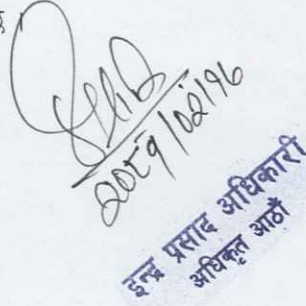 २०८१/०२/१६
इन्द्र प्रसाद अधिकारी
अधिकृत आठौँ